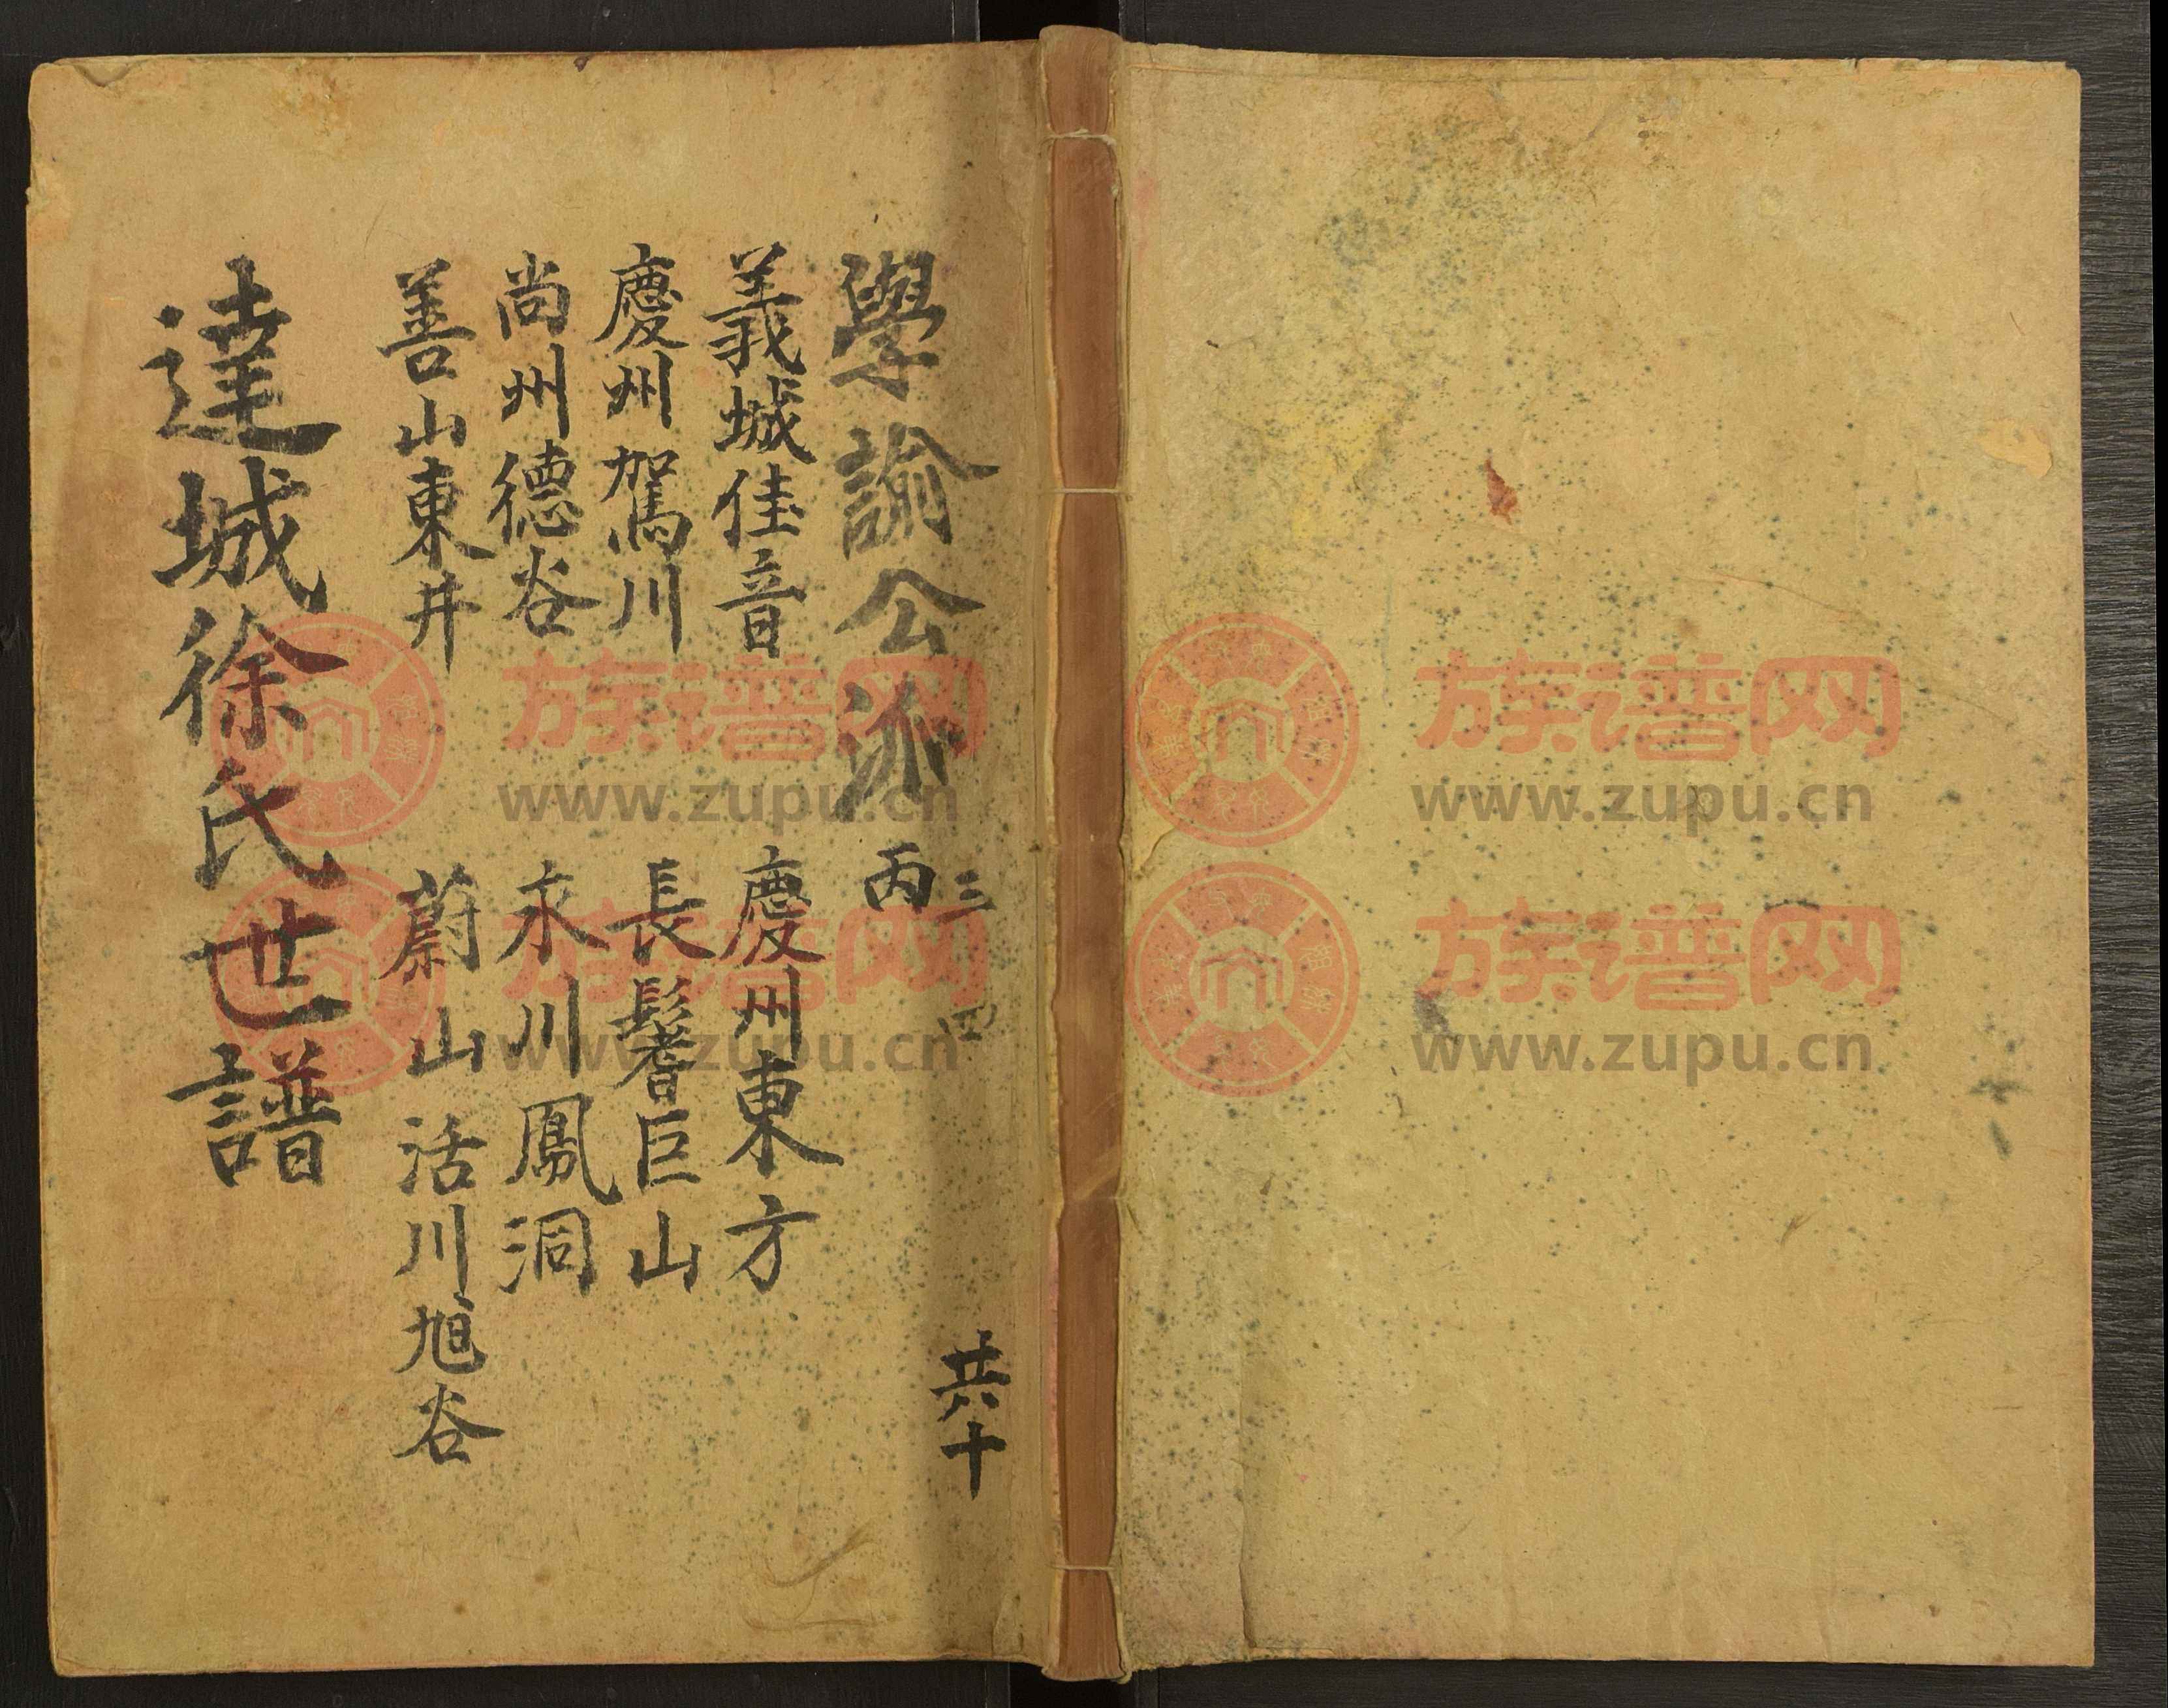 學諭公派 丙
三四
共十
義城佳音
慶州東方
慶州駕川
長鬐巨山
尚州德谷
永川鳳洞
善山東井
蔚山活川旭谷
達城徐氏世譜
族谱网
www.zupu.cn
族谱网
www.zupu.cn
族谱网
www.zupu.cn
族谱网
www.zupu.cn